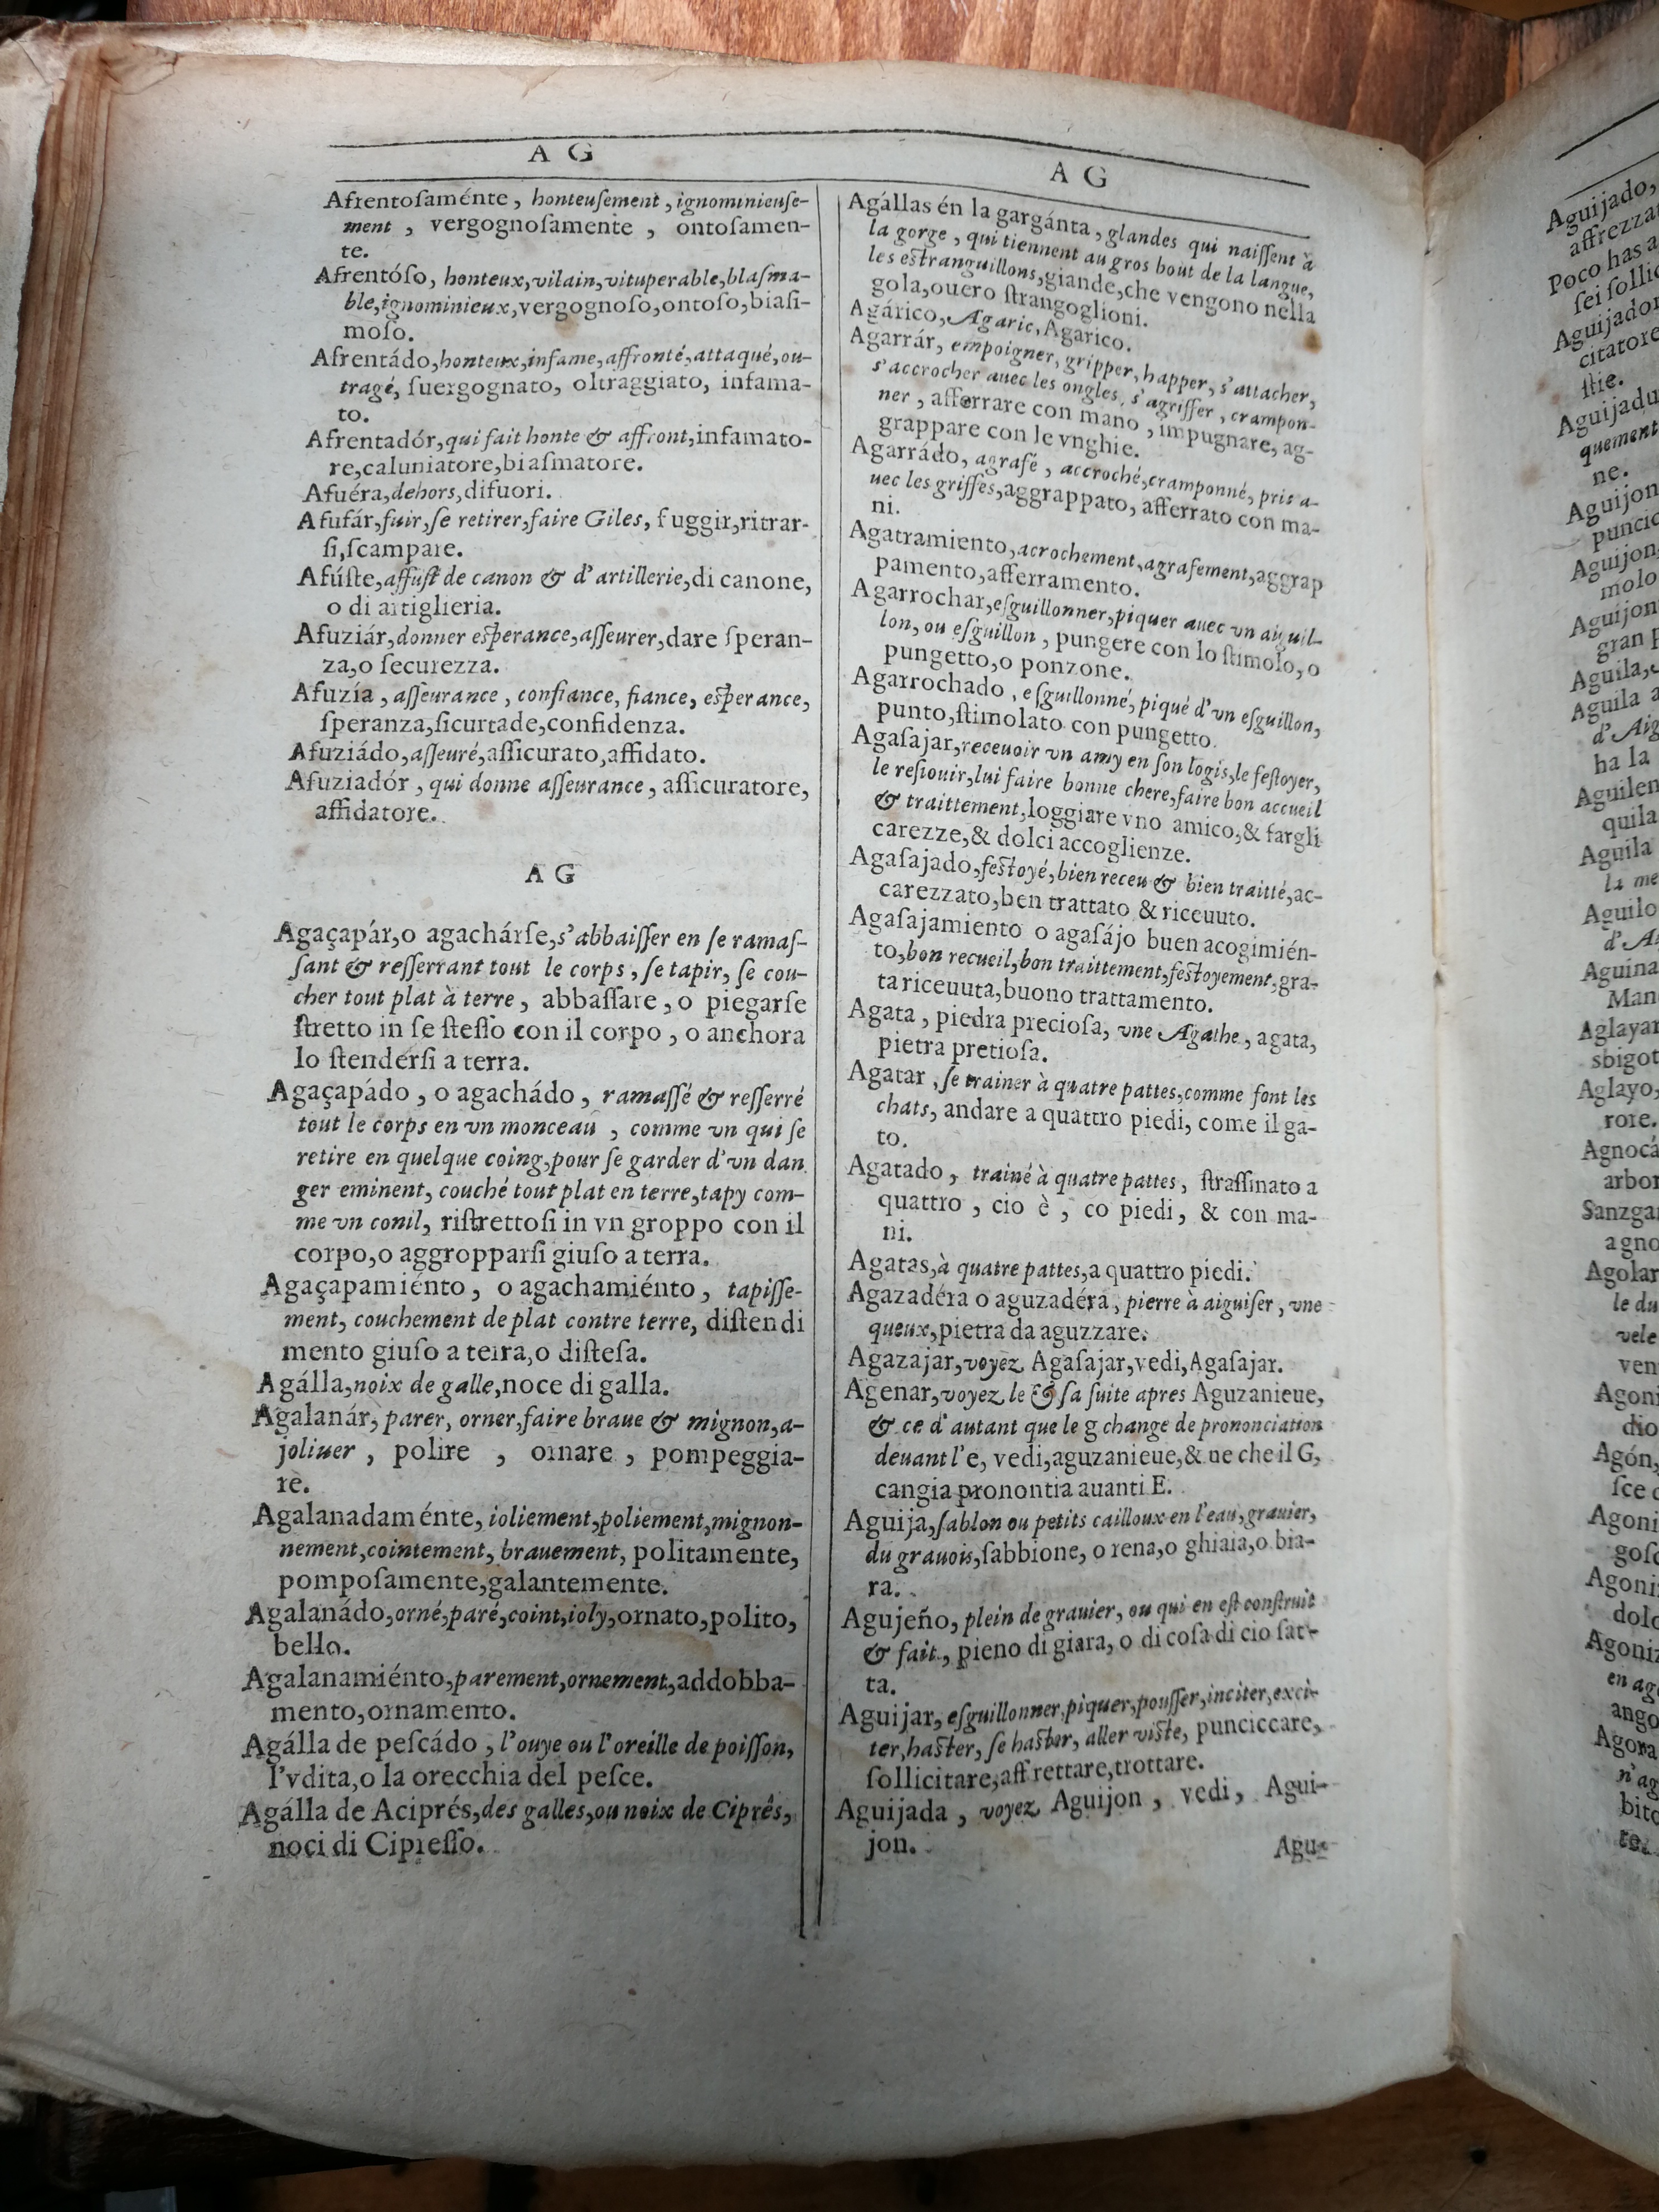 A G
Afrentoſaménte, honteuſement, ignominieuſe-
ment, vergognoſamente, ontoſamen-
te.
Afrentóſo, honteux, vilain, vituperable, blaſma-
ble, ignominieux, vergognoſo, ontoſo, biaſi-
moſo.
Afrentádo, honteux, infame, affronté, attaqué, ou-
tragé, ſuergognato, oltraggiato, infama-
to.
Afrentadór, qui fait honte & affront, infamato-
re, caluniatore, biaſmatore.
Afuéra, dehors, difuori.
Afufár, fuir, ſe retirer, faire Giles, fuggir, ritrar-
ſi, ſcampare.
Afúſte, affuſt de canon & d'artillerie, di canone,
o di artiglieria.
Afuziár, donner eſperance, aſſeurer, dare ſperan-
za, o ſecurezza.
Afuzía, aſſeurance, confiance, fiance, eſperance,
ſperanza, ſicurtade, confidenza.
Afuziádo, aſſeuré, aſſicurato, affidato.
Afuziadór, qui donne aſſeurance, aſſicuratore,
affidatore.
A G
Agaçapár, o agachárſe, s'abbaiſſer en ſe ramaſ-
ſant & reſſerrant tout le corps, ſe tapir, ſe cou-
cher tout plat à terre, abbaſſare, o piegarſe
ſtretto in ſe ſteſſo con il corpo, o anchora
lo ſtenderſi a terra.
Agaçapádo, o agachádo, ramaſſé & reſſerré
tout le corps en vn monceau, comme vn qui ſe
retire en quelque coing, pour ſe garder d'vn dan
ger eminent, couché tout plat en terre, tapy com-
me vn conil, riſtrettoſi in vn groppo con il
corpo, o aggropparſi giuſo a terra.
Agaçapamiénto, o agachamiénto, tapiſſe-
ment, couchement de plat contre terre, diſtendi
mento giuſo a terra, o diſteſa.
Agálla, noix de galle, noce di galla.
Agalanár, parer, orner, faire braue & mignon, a-
joliuer, polire, ornare, pompeggia-
re.
Agalanadaménte, ioliement, poliement, mignon-
nement, cointement, brauement, politamente,
pompoſamente, galantemente.
Agalanádo, orné, paré, coint, ioly, ornato, polito,
bello.
Agalanamiénto, parement, ornement, addobba-
mento, ornamento.
Agálla de peſcádo, l'ouye ou l'oreille de poiſſon,
l'vdita, o la orecchia del peſce.
Agálla de Aciprés, des galles, ou noix de Ciprês,
noci di Cipreſſo.
A G
Agállas én la gargánta, glandes qui naiſſent à
la gorge, qui tiennent au gros bout de la langue,
les eſtranguillons, giande, che vengono nella
gola, ouero ſtrangoglioni.
Agárico, Agaric, Agarico.
Agarrár, empoigner, gripper, happer, s'attacher,
s'accrocher auec les ongles, s'agriffer, crampon-
ner, afferrare con mano, impugnare, ag-
grappare con le vnghie.
Agarrádo, agrafé, accroché, cramponné, pris a-
uec les griffes, aggrappato, afferrato con ma-
ni.
Agatramiento, acrochement, agrafement, aggrap
pamento, afferramento.
Agarrochar, eſguillonner, piquer auec vn aiguil-
lon, ou eſguillon, pungere con lo ſtimolo, o
pungetto, o ponzone.
Agarrochado, eſguillonné, piqué d'vn eſguillon,
punto, ſtimolato con pungetto.
Agaſajar, receuoir vn amy en ſon logis, le feſtoyer,
le reſiouir, lui faire bonne chere, faire bon accueil
& traittement, loggiare vno amico, & fargli
carezze, & dolci accoglienze.
Agaſajado, feſtoyé, bien receu & bien traitté, ac-
carezzato, ben trattato & riceuuto.
Agaſajamiento o agaſájo buen acogimién-
to, bon recueil, bon traittement, feſtoyement, gra-
ta riceuuta, buono trattamento.
Agata, piedra precioſa, vne Agathe, agata,
pietra pretioſa.
Agatar, ſe trainer à quatre pattes, comme font les
chats, andare a quattro piedi, come il ga-
to.
Agatado, trainé à quatre pattes, ſtraſſinato a
quattro, cio è, co piedi, & con ma-
ni.
Agatas, à quatre pattes, a quattro piedi.
Agazadéra o aguzadéra, pierre à aiguiſer, vne
queux, pietra da aguzzare.
Agazajar, voyez Agaſajar, vedi, Agaſajar.
Agenar, voyez le & ſa ſuite apres Aguzanieue,
& ce d'autant que le g change de prononciation
deuant l'e, vedi, aguzanieue, & ne che il G,
cangia pronontia auanti E.
Aguija, ſablon ou petits cailloux en l'eau, grauier,
du grauois, ſabbione, o rena, o ghiaia, o bia-
ra.
Agujeño, plein de grauier, ou qui en eſt conſtruit
& fait, pieno di giara, o di coſa di cio fat-
ta.
Aguijar, eſguillonner, piquer, pouſſer, inciter, exci-
ter, haſter, ſe haſter, aller viſte, punciccare,
ſollicitare, affrettare, trottare.
Aguijada, voyez Aguijon, vedi, Agui-
jon.
Agu-
Aguijado,
affrezzat
Poco has a
ſei ſollic
Aguijador
citatore
ſtie.
Aguijadu
quement
ne.
Aguijon
puncic
Aguijon
molo
Aguijon
gran p
Aguila,
Aguila a
d'Aig
ha la
Aguilen
quila
Aguila
la me
Aguilo
d'Ai
Aguina
Man
Aglayar
sbigot
Aglayo,
rore.
Agnocá
arbor
Sanzga
agno
Agolar
le du
vele
ven
Agoni
dio
Agón,
ſce
Agoni
goſ
Agoni
dolo
Agoniz
en ag
ango
Agora
n'ag
bito
re.